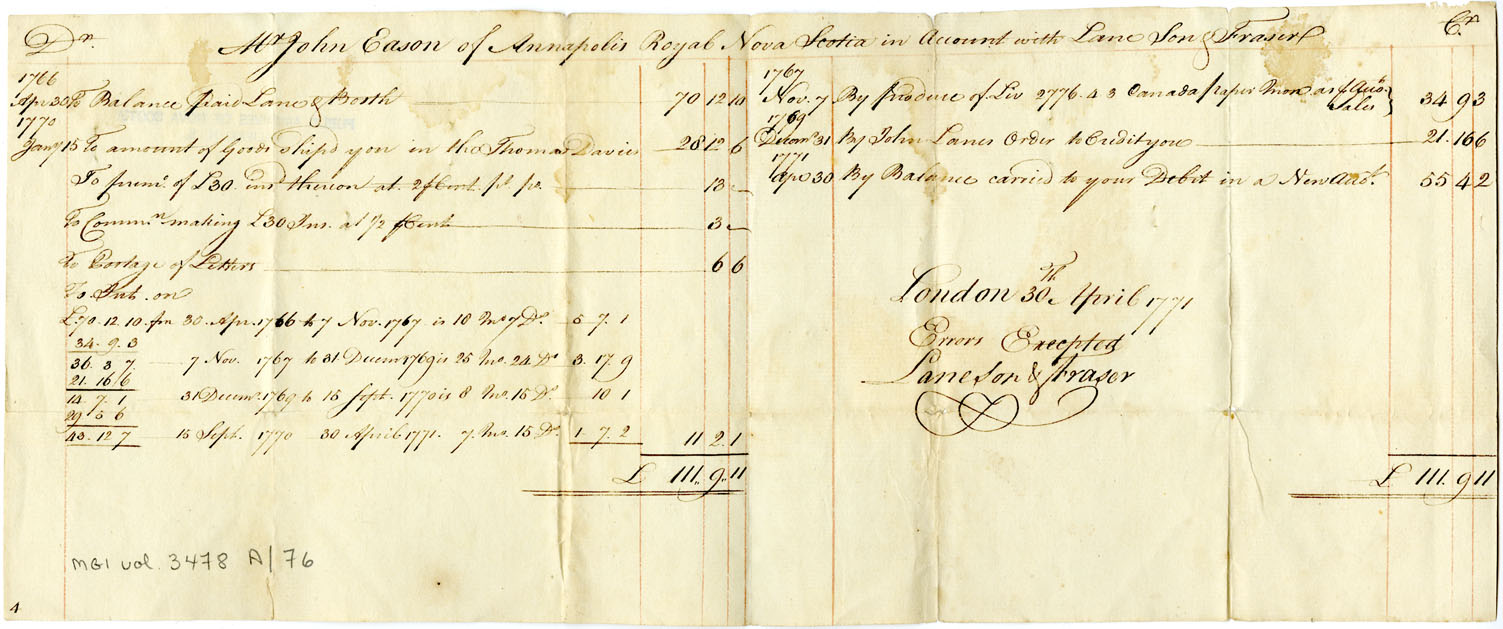 Dr. Mr John Eason of Annapolis Royal Nova Scotia in Account with Lane Son & Fraser Cr.
1766
Apr 30 To Balance paid Lane & Booth 70 12 10
1770
Jany 15 To amount of Goods shipd you in the Thomas Davies 28 12 6
To premm. of £30 insd thereon at 2 ⅌ Cent 13 –
To Commn. making £30 Ins. at 1/2 ⅌ Cent 3 –
To Postage of Letters 6 6
To Int. on
£70. 12. 10. fm 30. Apr. 1766 to 7 Nov. 1767 is 18 Mo. 7 Ds. 5 7. 1
34. 9. 3
36. 3 7. 7 Nov. 1767 to 31 Decemr 1769 is 25 Mo. 24 Ds 3. 17. 9
21. 16 6
14. 7. 1 31 Decemr. 1769 to 15 Sept. 1770 is 8 Mo. 15 Ds. 10 1
29 5 6
43. 12 7 15 Sept. 1770 30 April 1771. 7 Mo. 15 Ds. 1 7. 2 11 2. 1
£ 111,, 9,, 11
1767
Nov. 7 By produce of Liv 2776. 4 3 Canada paper Mon as ⅌ Acct. Sales 34 9 3
1769
Decemr. 31 By John Lanes Order to Credit you 21. 16 6
1771
Apr 30 By Balance carried to your Debit in a New Acct. 55 4 2
London 30th April 1771
Errors Excepted
Lane Son & Fraser
£ 111. 9 11
MG1 vol. 3478 A/76